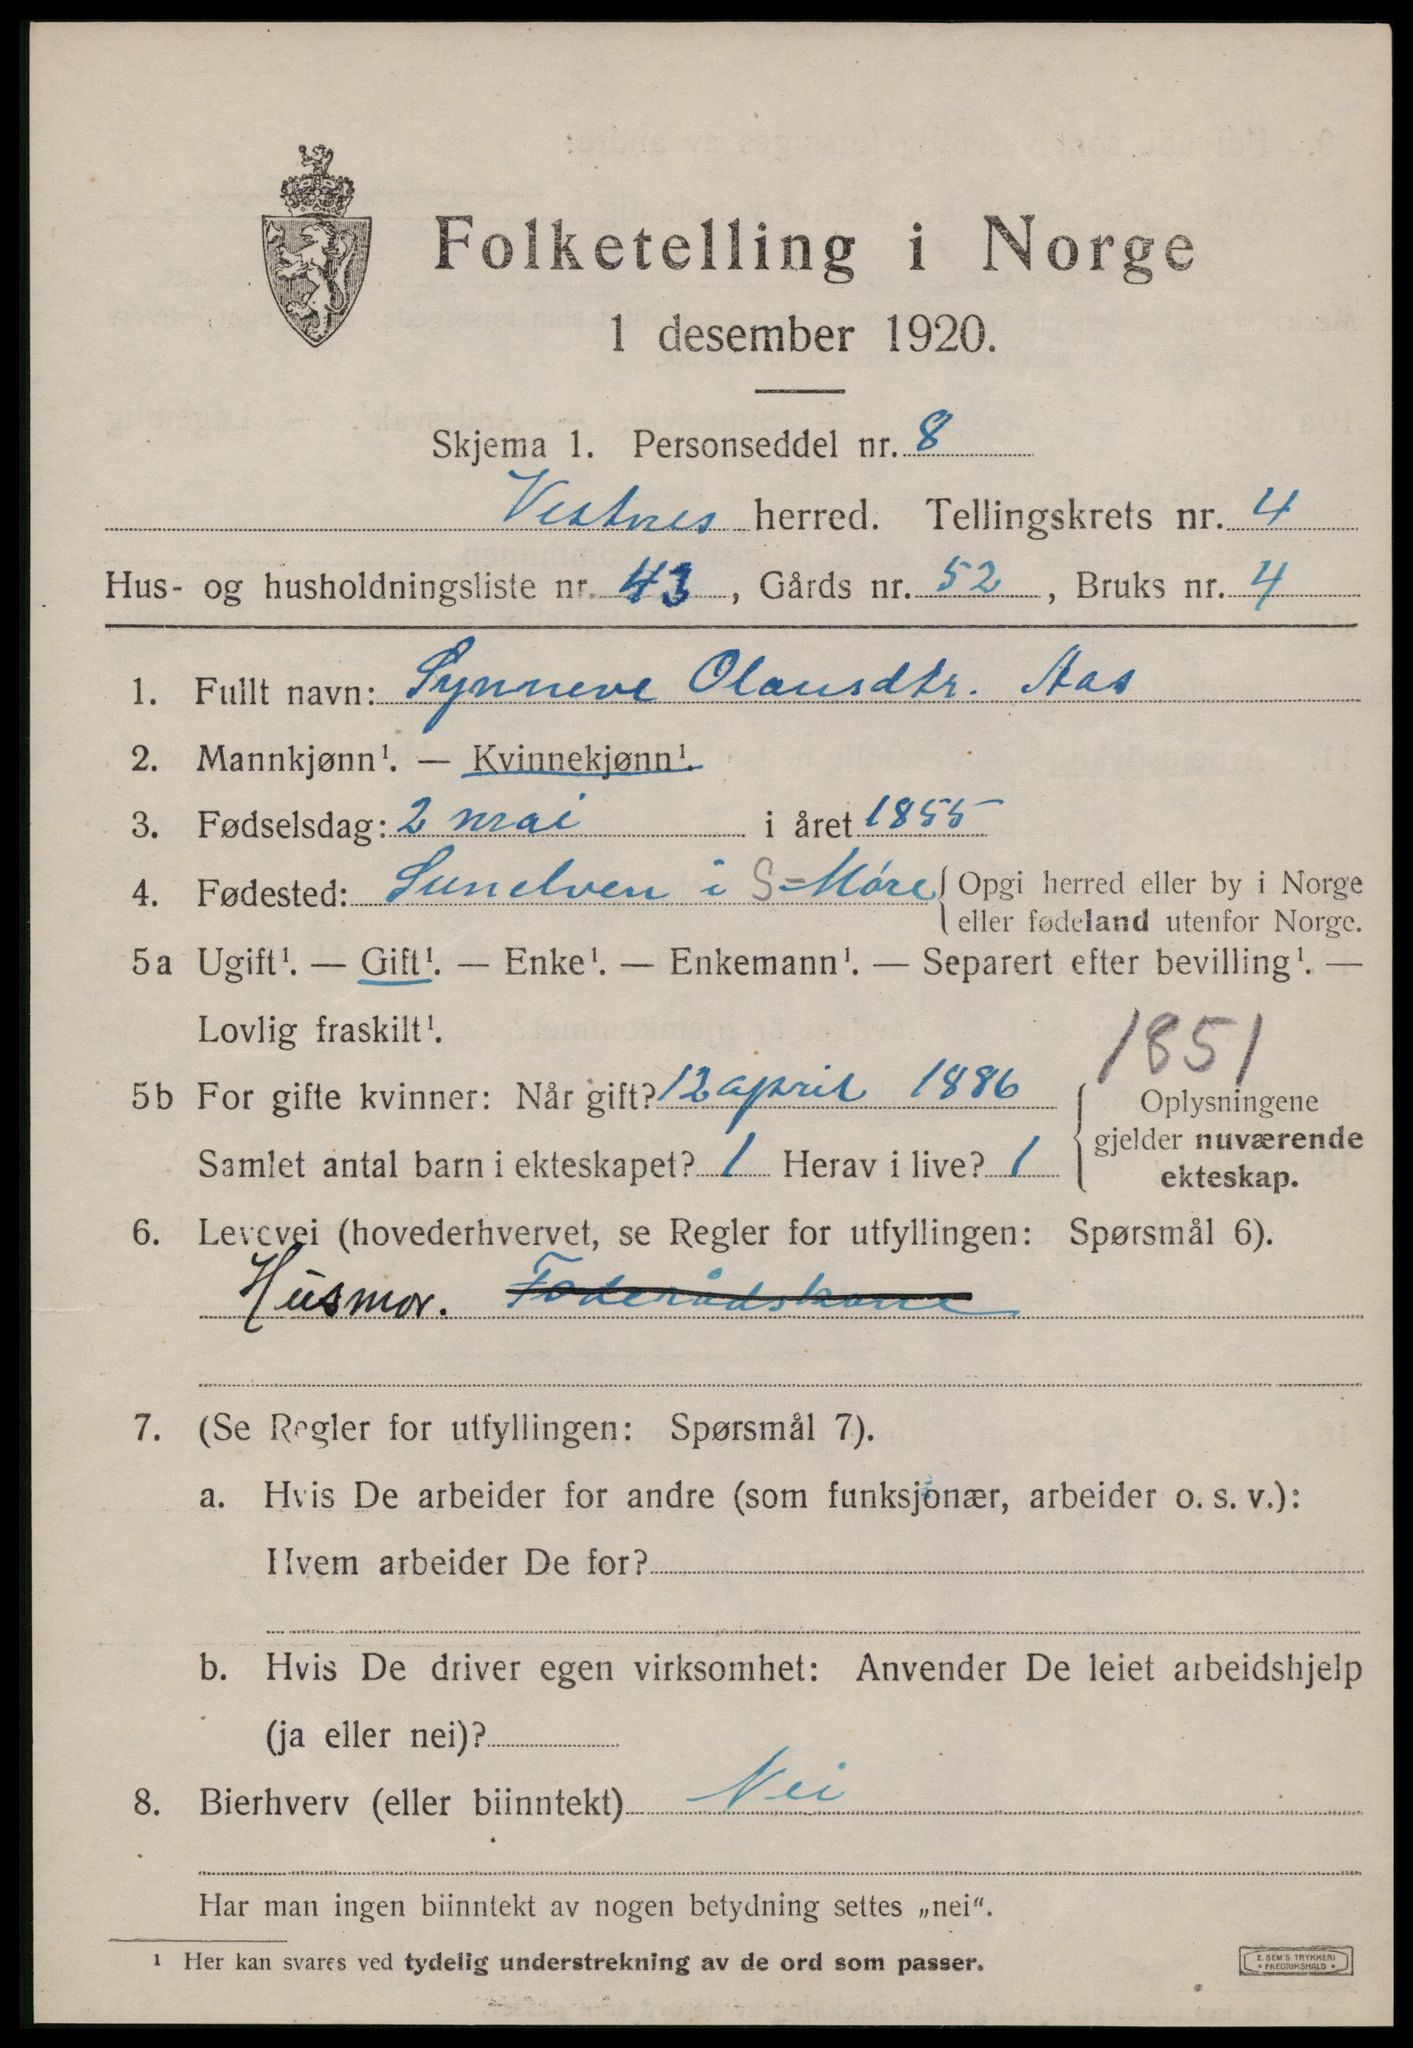 Folketelling i Norge
1 desember 1920.
Skjema 1. Personseddel nr. 8
Vestnes herred. Tellingskrets nr. 4
Hus- og husholdningsliste nr. 43, Gårds nr. 52, Bruks nr. 4
1. Fullt navn: Synneve Olausdtr. Aas
2. Mannkjønn¹. — Kvinnekjønn¹.
3. Fødselsdag: 2 mai i året 1855
4. Fødested: Sunelven i S=Møre { Opgi herred eller by i Norge
eller fødeland utenfor Norge.
5a Ugift¹. — Gift¹. — Enke¹. — Enkemann¹. — Separert efter bevilling¹. —
Lovlig fraskilt¹.
1851
5b For gifte kvinner: Når gift? 12 april 1886
Samlet antal barn i ekteskapet? 1 Herav i live? 1
Oplysningene
gjelder nuværende
ekteskap.
6. Levevei (hovederhvervet, se Regler for utfyllingen: Spørsmål 6).
Husmor. Føderådskone
7. (Se Regler for utfyllingen: Spørsmål 7).
a. Hvis De arbeider for andre (som funksjonær, arbeider o. s. v.):
Hvem arbeider De for?
b. Hvis De driver egen virksomhet: Anvender De leiet arbeidshjelp
(ja eller nei)?
8. Bierhverv (eller biinntekt) Nei
Har man ingen biinntekt av nogen betydning settes „nei“.
¹ Her kan svares ved tydelig understrekning av de ord som passer.
E. SEM'S TRYKKERI
• FREDRIKSHALD •